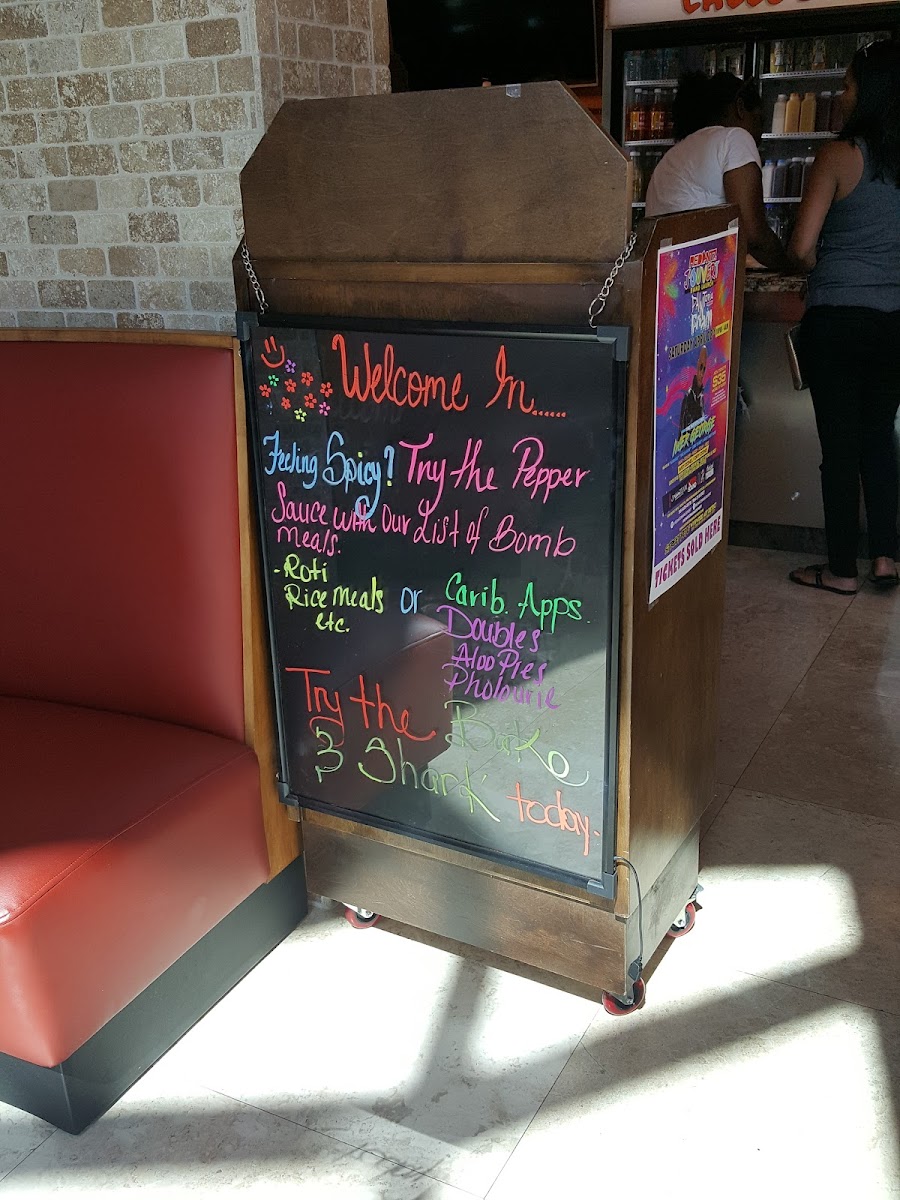 Welcome In......
Feeling Spicy? Try the Pepper
Sauce with Our List of Bomb
meals.
- Roti
Rice meals or Carib. Apps.
etc.
Doubles
Aloo Pies
Pholourie
Try the Bake
3 Shark today.
SATURDAY
$35
IWER GEORGE
TICKETS SOLD HERE